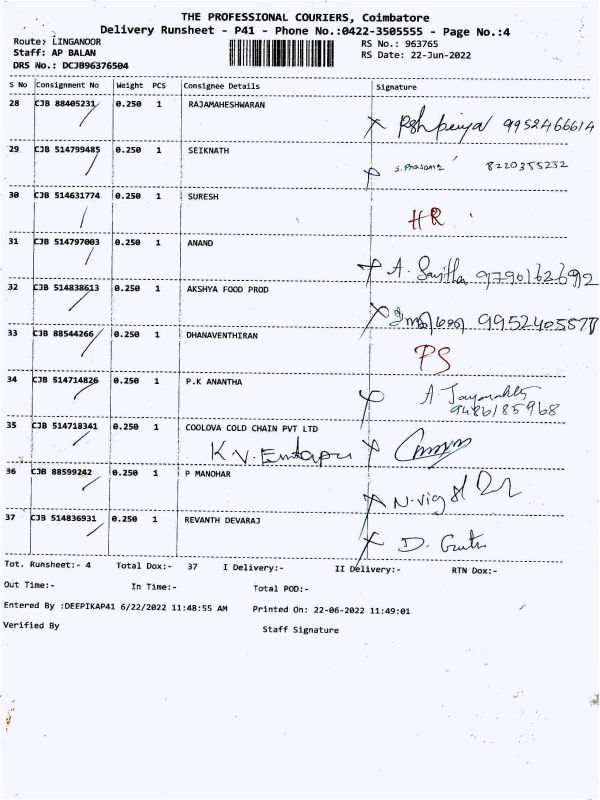 THE PROFESSIONAL COURIERS, Coimbatore
Delivery Runsheet - P41 - Phone No.:0422-3505555 - Page No.:4
Route: LINGANOOR RS No.: 963765
Staff: AP BALAN RS Date: 22-Jun-2022
DRS No.: DCJB96376504
S No Consignment No Weight PCS Consignee Details Signature
28 CJB 88405231 0.250 1 RAJAMAHESHWARAN
9952466614
29 CJB 514799485 0.250 1 SEIKNATH
8220355232
30 CJB 514631774 0.250 1 SURESH
HR
31 CJB 514797003 0.250 1 ANAND
A. Savitha
32 CJB 514838613 0.250 1 AKSHYA FOOD PROD
33 CJB 88544266 0.250 1 DHANAVENTHIRAN
PS
34 CJB 514714826 0.250 1 P.K ANANTHA
9486185968
35 CJB 514718341 0.250 1 COOLOVA COLD CHAIN PVT LTD
K.V.
36 CJB 88599242 0.250 1 P MANOHAR
37 CJB 514836931 0.250 1 REVANTH DEVARAJ
Tot. Runsheet:- 4 Total Dox:- 37 I Delivery:- II Delivery:- RTN Dox:-
Out Time:- In Time:- Total POD:-
Entered By :DEEPIKAP41 6/22/2022 11:48:55 AM Printed On: 22-06-2022 11:49:01
Verified By Staff Signature